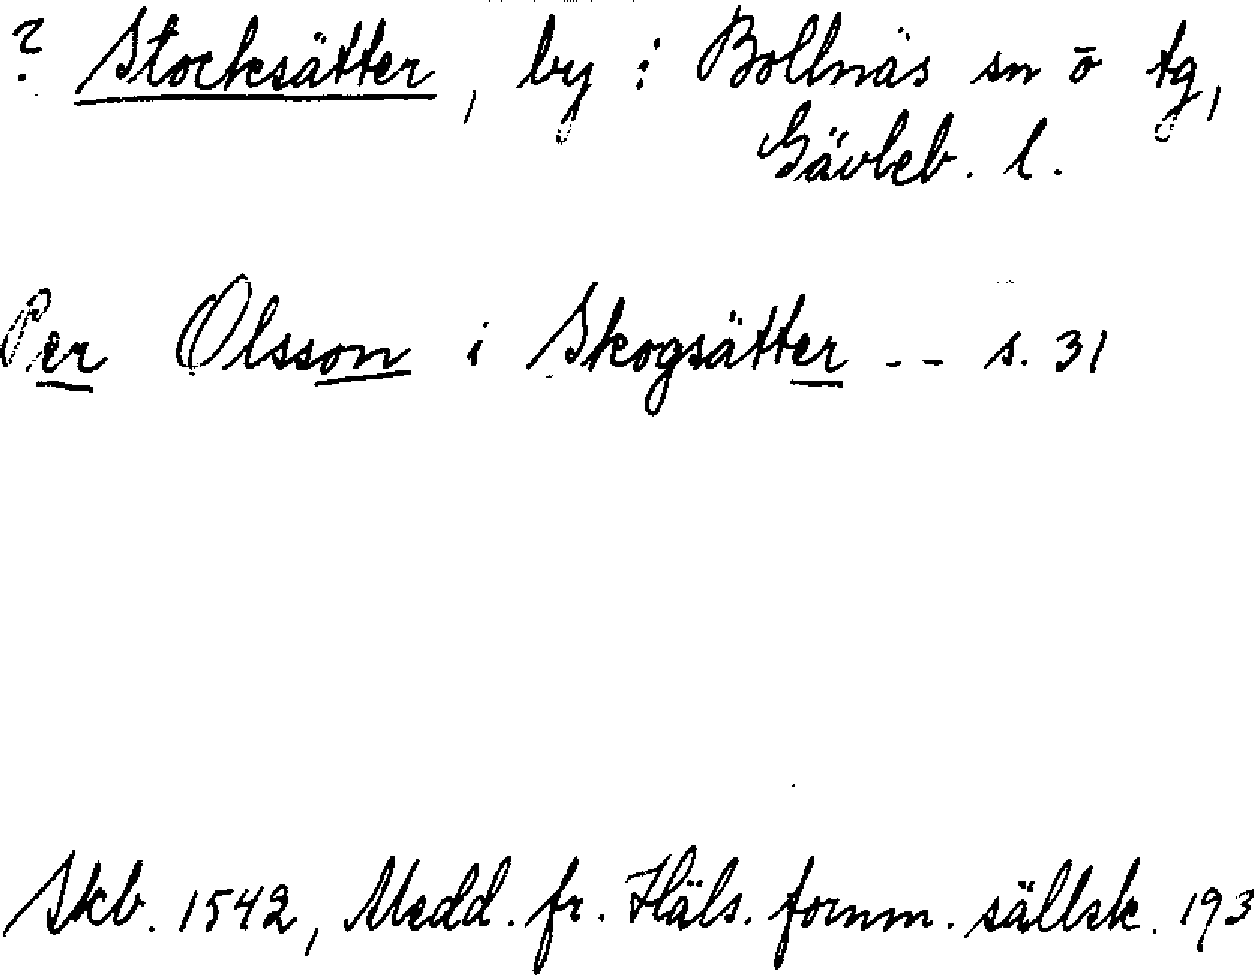 ? Stocksätter, by i Bollnäs sn o tg,
Gävleb. l.
Per Olsson i Skogsätter -- s. 31
Skb. 1542, Medd. fr. Häls. fornm. sällsk. 193